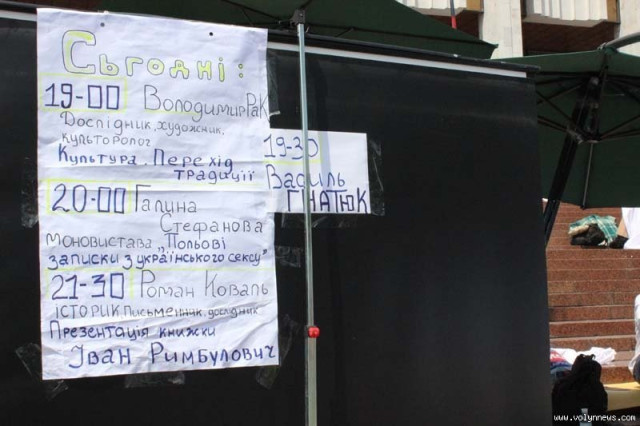 Сьогодні:
19-00 Володимир Рак
Дослідник, художник,
культоролог
Культура. Перехід
традиції
19-30
Василь
ГНАТЮК
20-00 Галина
Стефанова
Моновистава „Польові
записки з українського сексу"
21-30 Роман Коваль
історик, письменник, дослідник
Презентація книжки
Іван Римбулович
www.volynnews.com